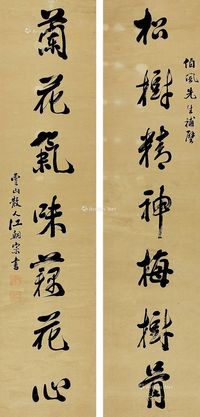 伯風先生補壁
松樹精神梅樹骨
蘭花氣味藕花心
雲山散人江朝宗書